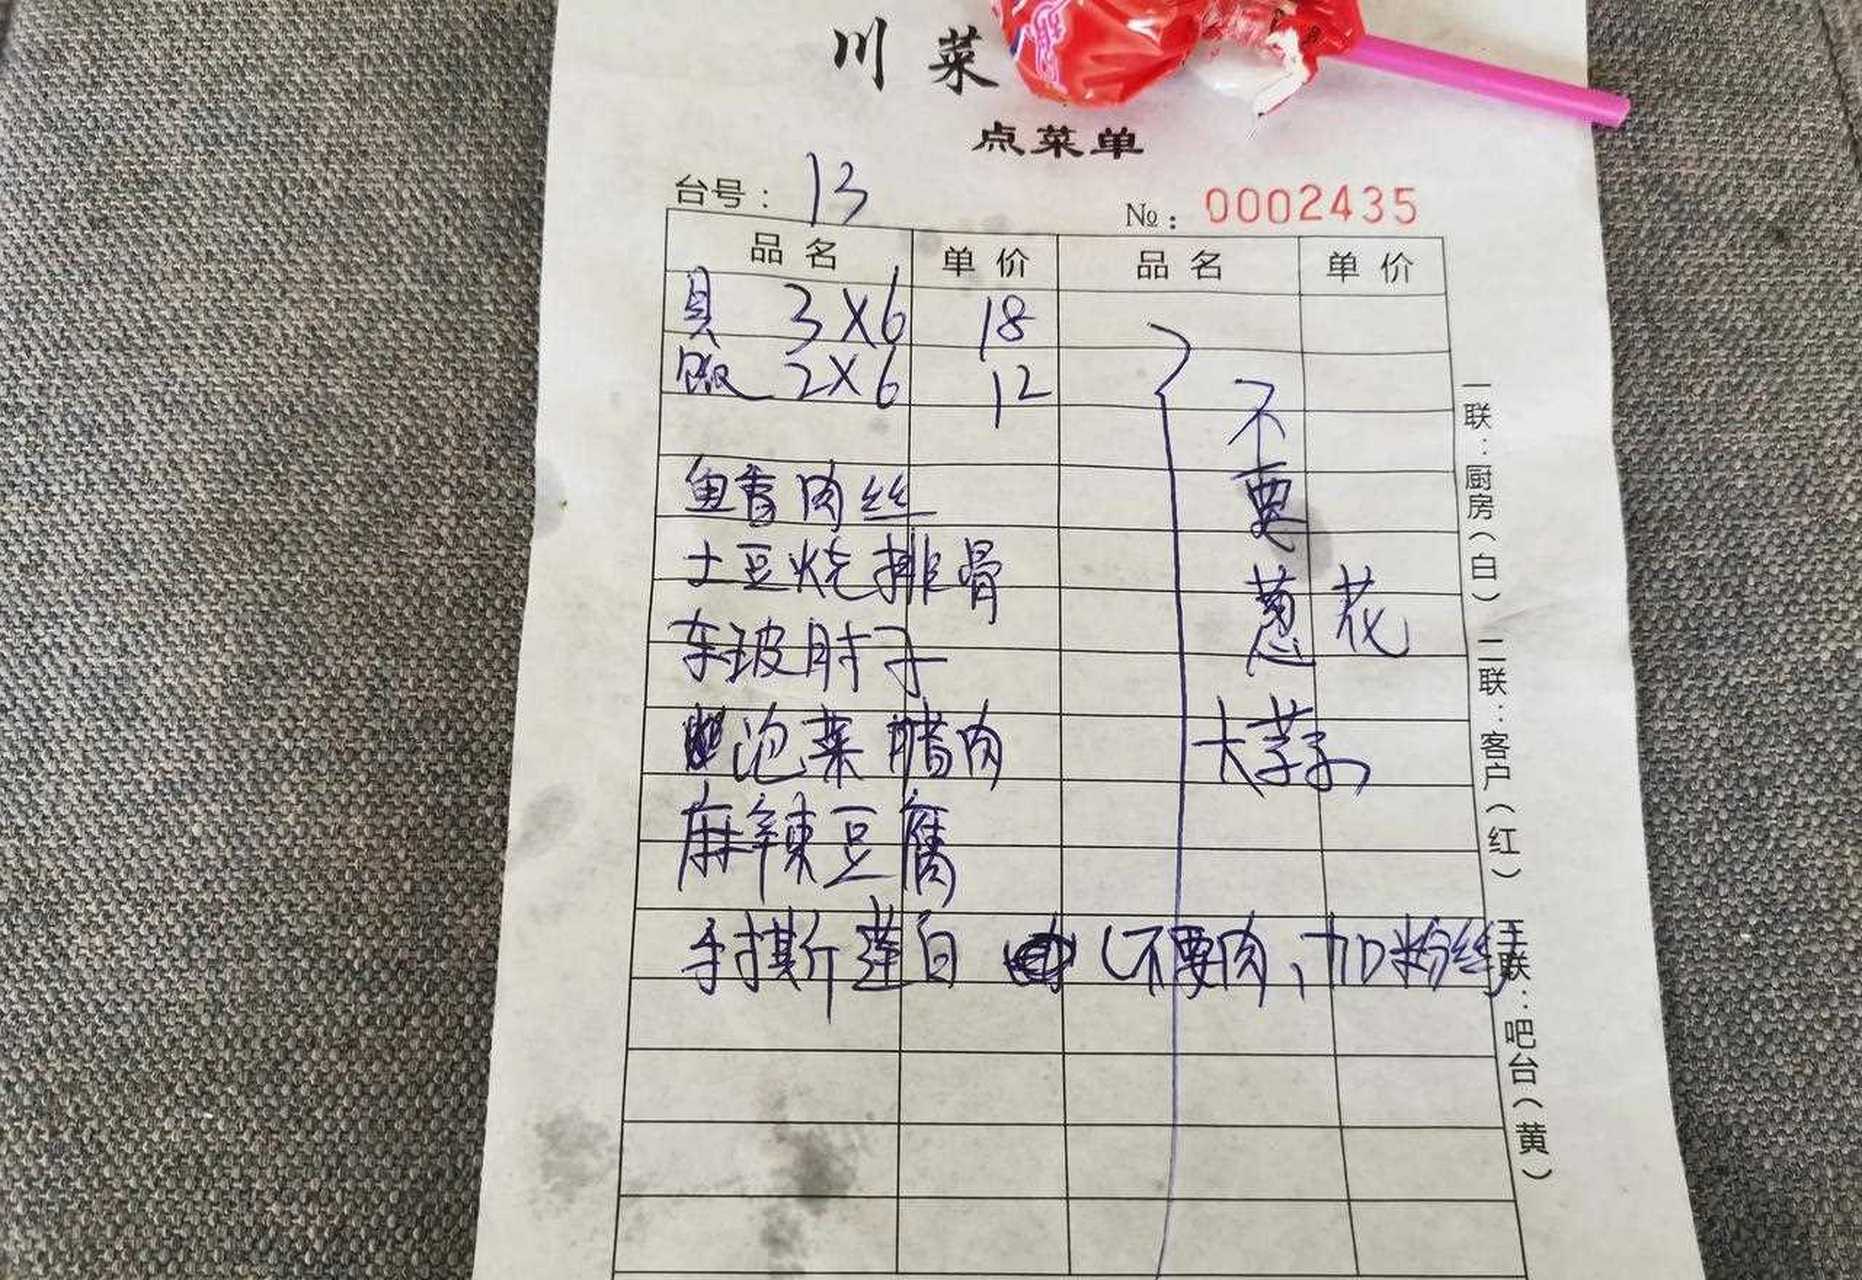 川菜
点菜单
台号：13
№：0002435
品名 单价 品名 单价
具 3X6 18
饭 2X6 12
鱼香肉丝
土豆烧排骨
东玻肘子
泡菜腊肉
麻辣豆腐
手撕莲白 （不要肉、加粉丝）
不要葱花
大蒜
一联：厨房（白） 二联：客户（红） 三联：吧台（黄）